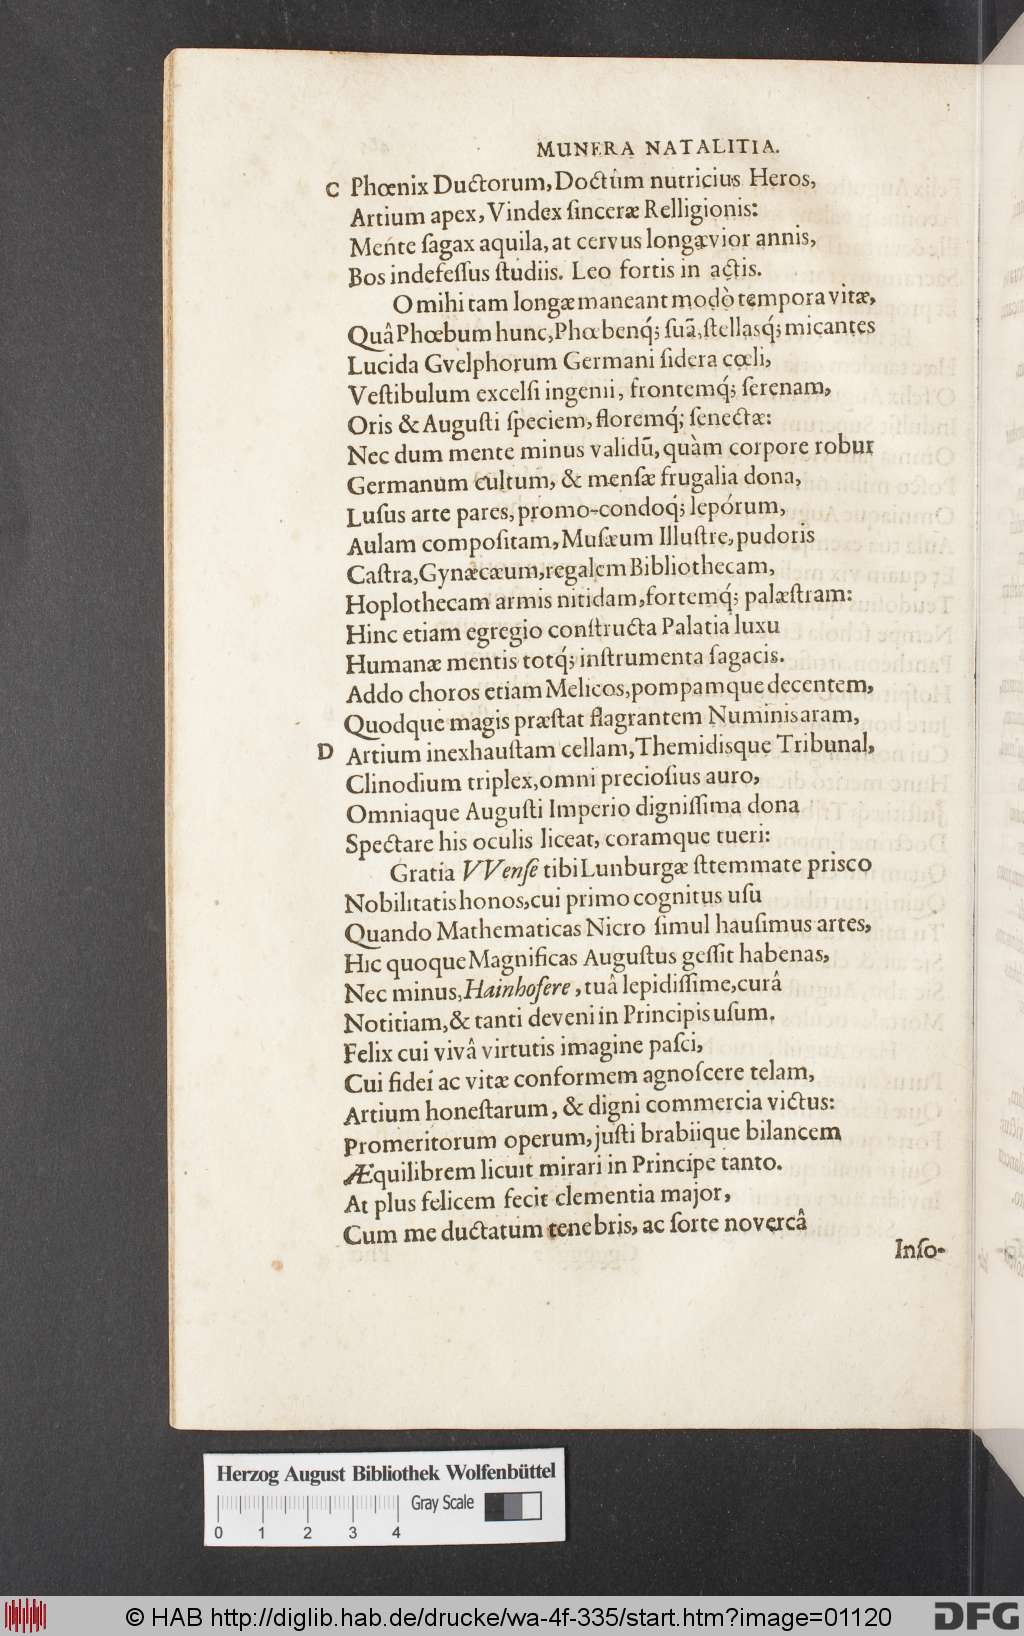 MUNERA NATALITIA.
C Phœnix Ductorum, Doctûm nutricius Heros,
Artium apex, Vindex ſinceræ Relligionis:
Mente ſagax aquila, at cervus longævior annis,
Bos indefeſſus ſtudiis. Leo fortis in actis.
O mihi tam longæ maneant modò tempora vitæ,
Quâ Phœbum hunc, Phœbenq́; ſuã, ſtellasq́; micantes
Lucida Gvelphorum Germani ſidera cœli,
Veſtibulum excelſi ingenii, frontemq́; ſerenam,
Oris & Auguſti ſpeciem, floremq́; ſenectæ:
Nec dum mente minus validũ, quàm corpore robur
Germanum cultum, & menſæ frugalia dona,
Luſus arte pares, promo-condoq́; lepórum,
Aulam compoſitam, Muſæum Illuſtre, pudoris
Caſtra, Gynæcæum, regalem Bibliothecam,
Hoplothecam armis nitidam, fortemq́; palæſtram:
Hinc etiam egregio conſtructa Palatia luxu
Humanæ mentis totq́; inſtrumenta ſagacis.
Addo choros etiam Melicos, pompamque decentem,
Quodque magis præſtat flagrantem Numinis aram,
D Artium inexhauſtam cellam, Themidisque Tribunal,
Clinodium triplex, omni precioſius auro,
Omniaque Auguſti Imperio digniſſima dona
Spectare his oculis liceat, coramque tueri:
Gratia VVenſe tibi Lunburgæ ſttemmate prisco
Nobilitatis honos, cui primo cognitus uſu
Quando Mathematicas Nicro ſimul hauſimus artes,
Hic quoque Magnificas Auguſtus geſſit habenas,
Nec minus, Hainhofere, tuâ lepidiſſime, curâ
Notitiam, & tanti deveni in Principis uſum.
Felix cui vivâ virtutis imagine paſci,
Cui fidei ac vitæ conformem agnoſcere telam,
Artium honeſtarum, & digni commercia victus:
Promeritorum operum, juſti brabiique bilancem
Æquilibrem licuit mirari in Principe tanto.
At plus felicem fecit clementia major,
Cum me ductatum tenebris, ac ſorte novercâ
Inſo-
Herzog August Bibliothek Wolfenbüttel
Gray Scale
0 1 2 3 4
© HAB http://diglib.hab.de/drucke/wa-4f-335/start.htm?image=01120
DFG